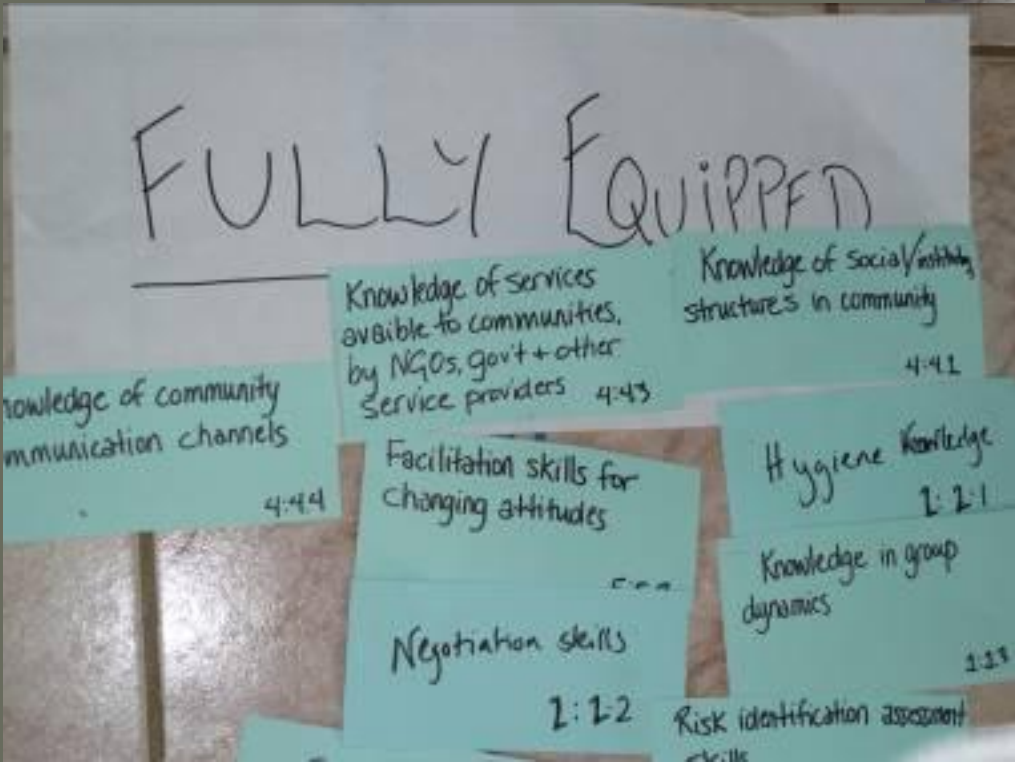 FULLY EQUIPPED
Knowledge of services
avaible to communities,
by NGOs, gov't + other
service providers 4:43
Knowledge of social/
structures in community
4:41
nowledge of community
mmunication channels
4:44
Facilitation skills for
changing attitudes
Hygiene Knowledge
1:2:1
Knowledge in group
dynamics
1:13
Negotiation skills
1:1:2
Risk identification assessment
skills